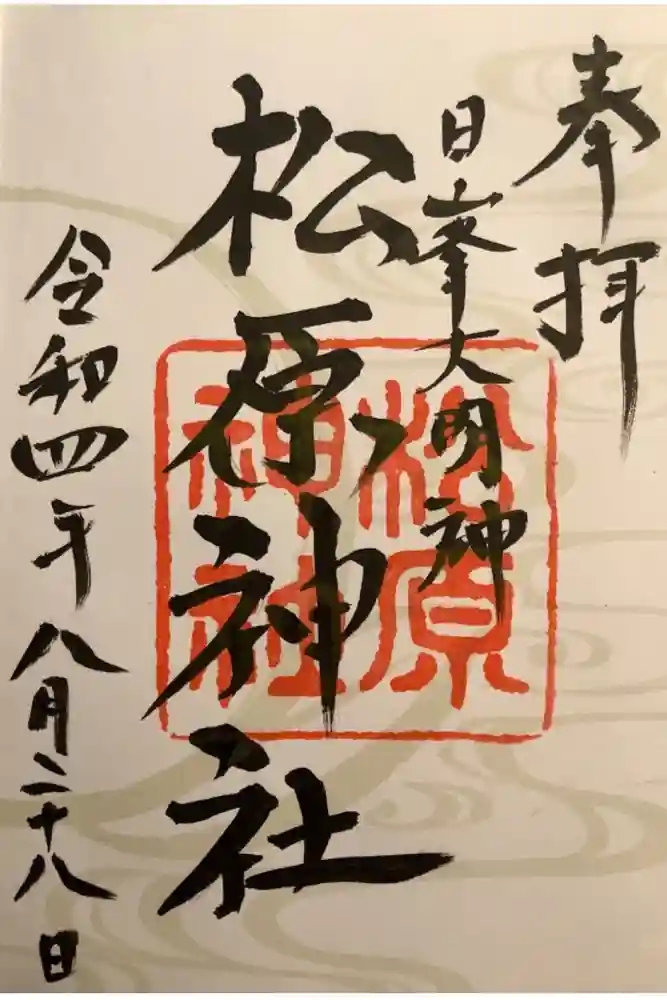 奉拝
日峯大明神
松原神社
松原神社
令和四年八月二十八日